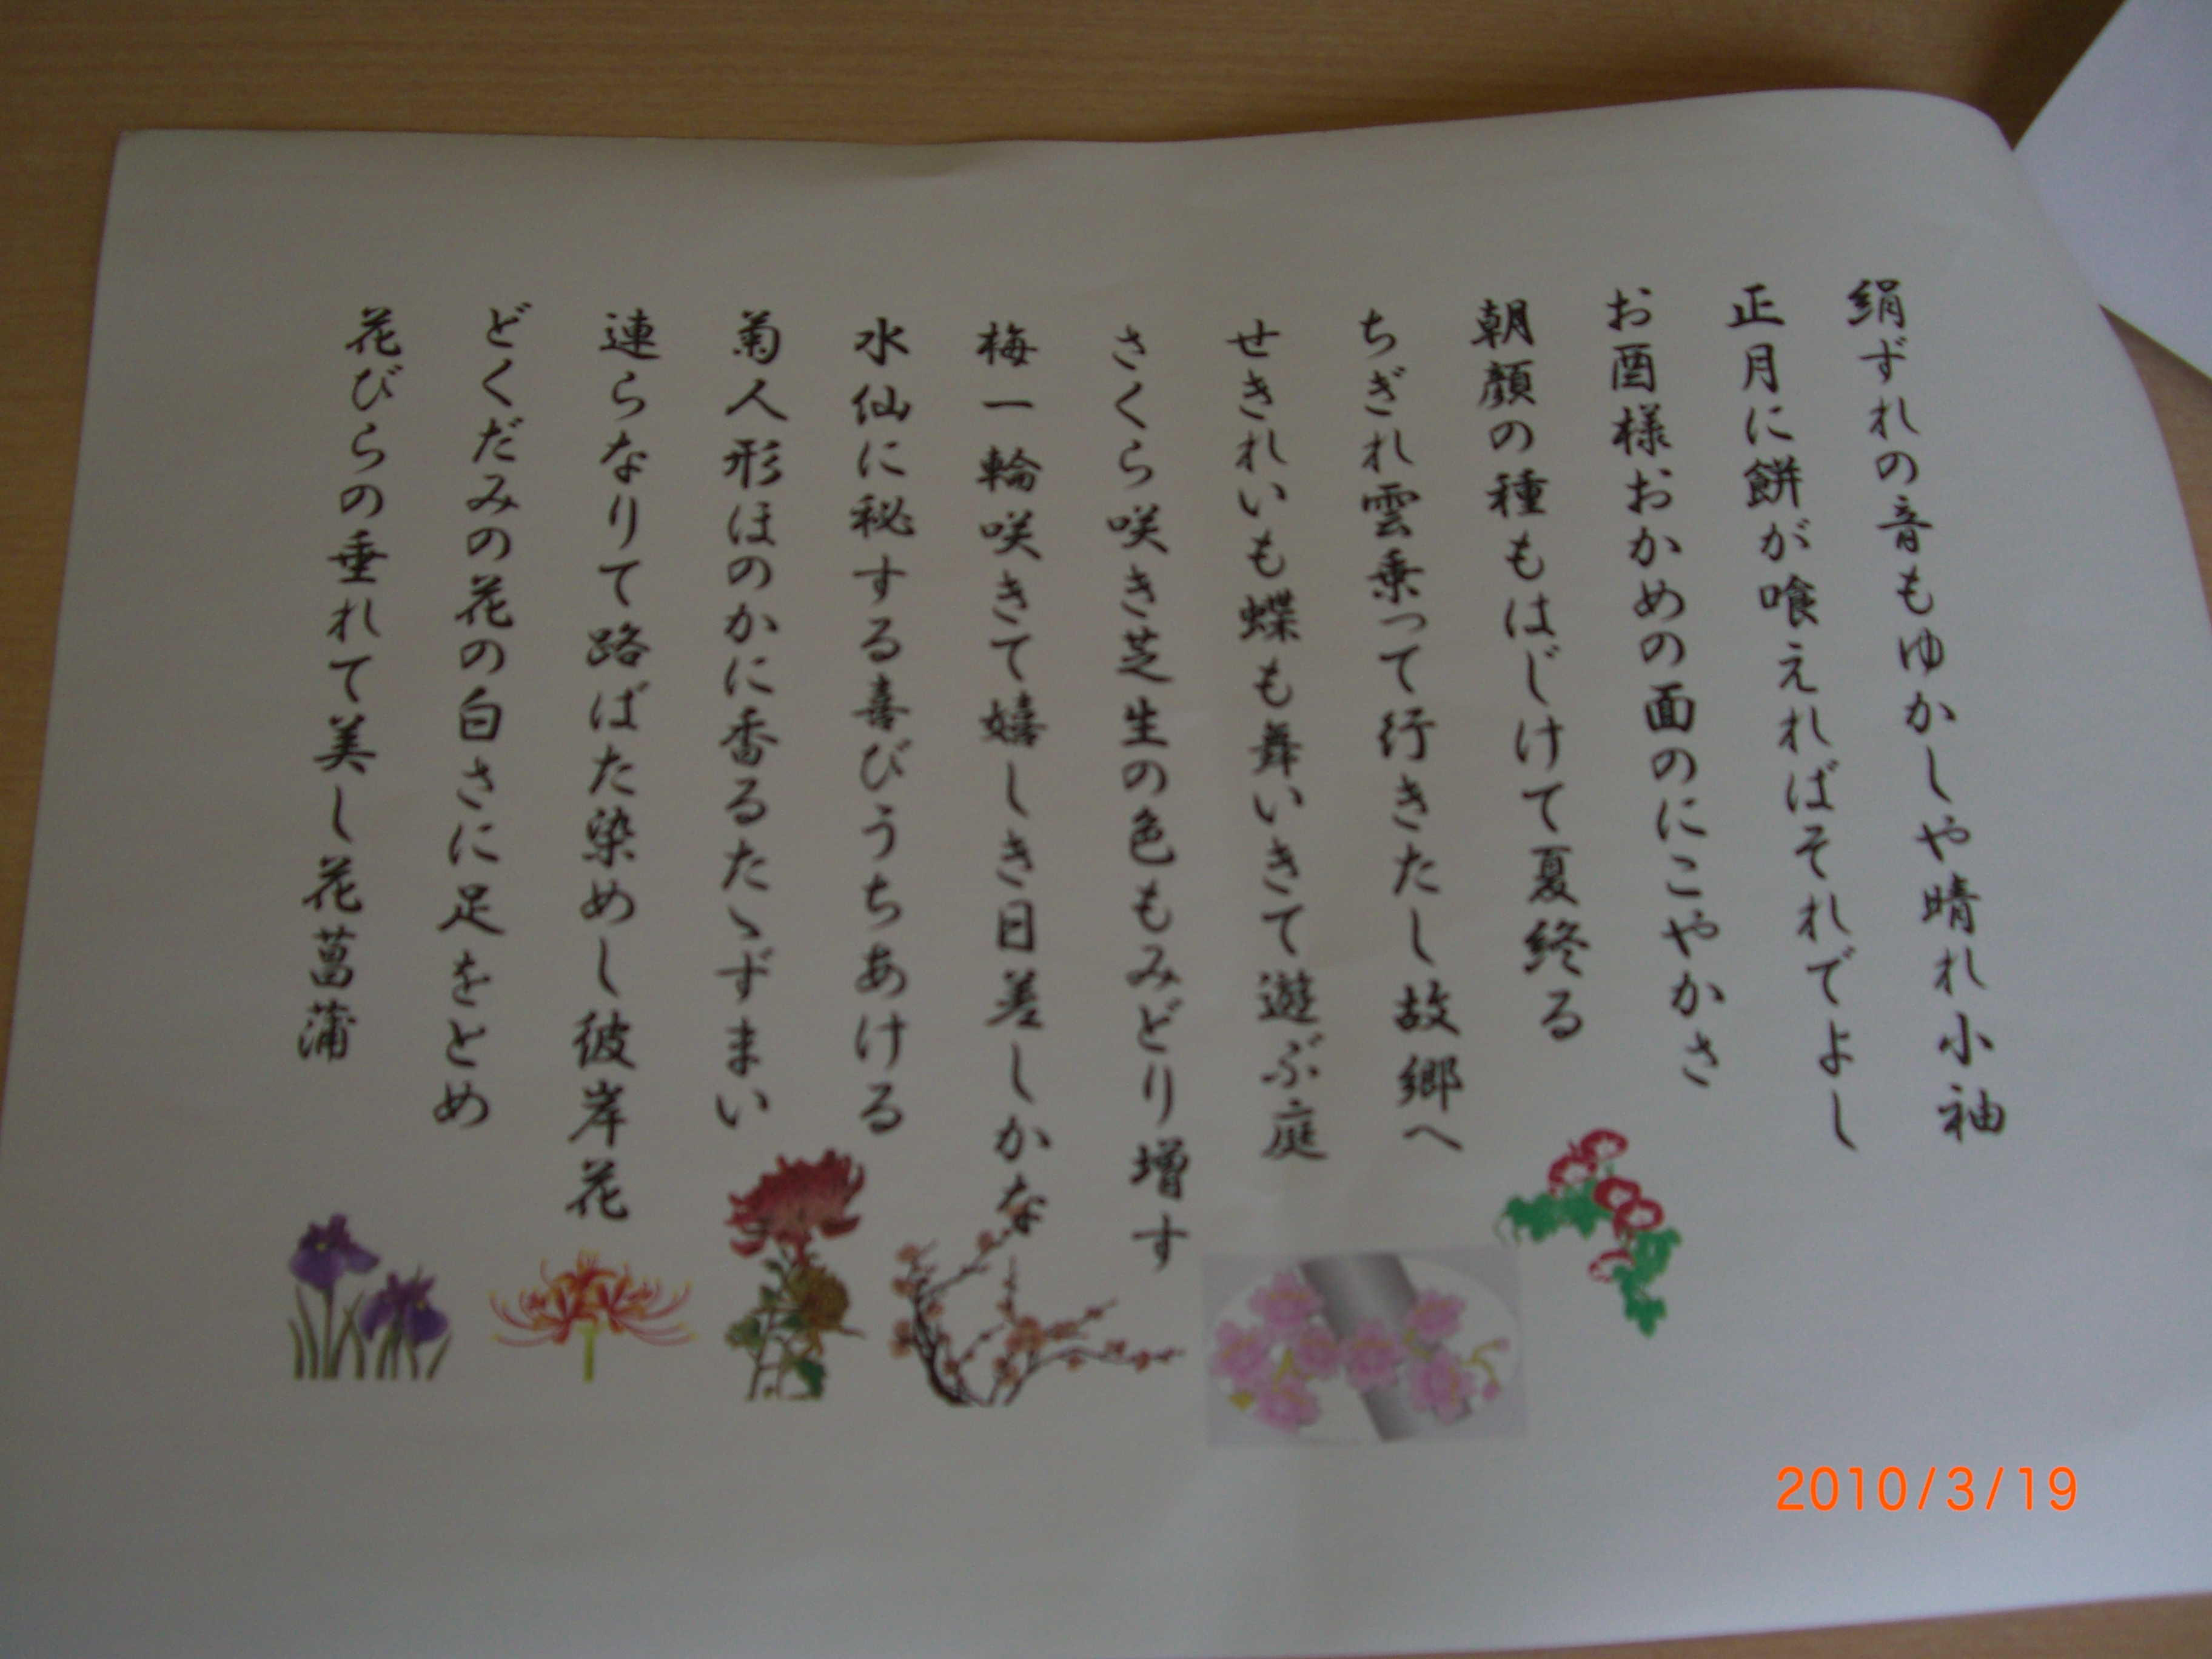 絹ずれの音もゆかしや晴れ小袖
正月に餅が喰えればそれでよし
お酉様おかめの面のにこやかさ
朝顔の種もはじけて夏終る
ちぎれ雲乗って行きたし故郷へ
せきれいも蝶も舞いきて遊ぶ庭
さくら咲き芝生の色もみどり増す
梅一輪咲きて嬉しき日差しかな
水仙に秘する喜びうちあける
菊人形ほのかに香るたゝずまい
連らなりて路ばた染めし彼岸花
どくだみの花の白さに足をとめ
花びらの垂れて美し花菖蒲
2010/3/19